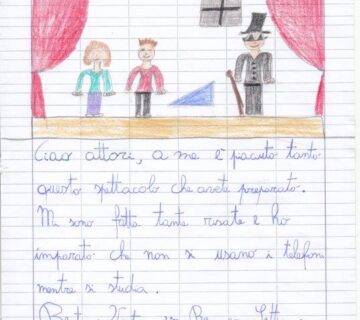 Ciao attori, a me è piaciuto tanto
questo spettacolo che avete preparato.
Mi sono fatta tante risate e ho
imparato che non si usano i telefoni
mentre si studia.